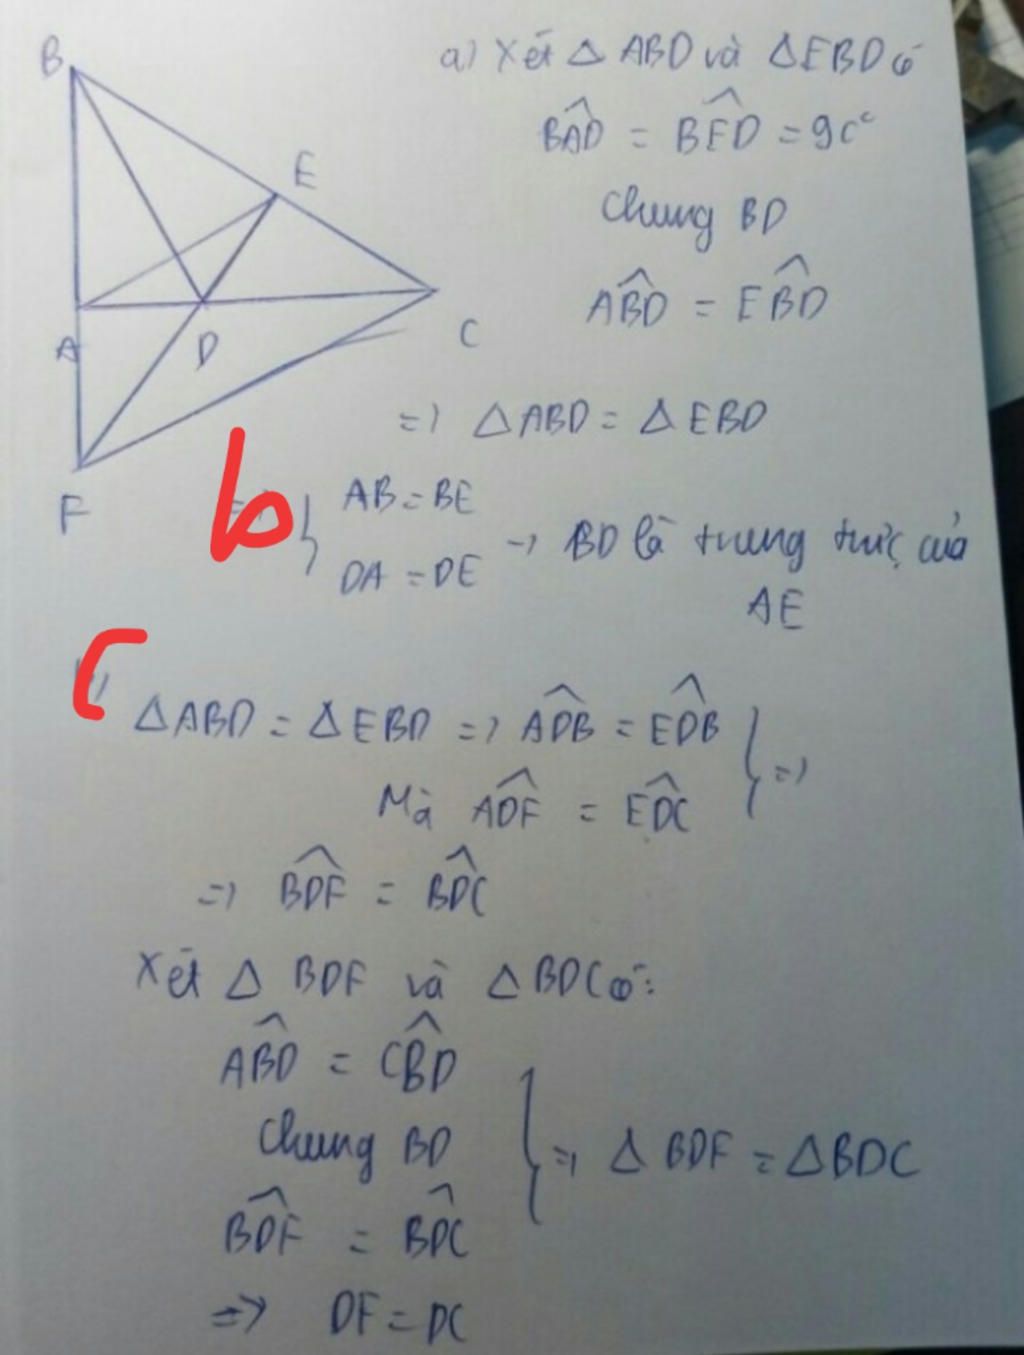 B
E
A
D
C
F
a) Xét △ ABD và △EBD có
BAD̂ = BED̂ = 90°
Chung BD
ABD̂ = EBD̂
=> △ABD = △EBD
b
=> { AB = BE
DA = DE -> BD là trung trực của
AE
c
△ABD = △EBD => ADB̂ = EDB̂ } =>
Mà ADF̂ = EDĈ
=> BDF̂ = BDĈ
Xét △ BDF và △BDC có:
ABD̂ = CBD̂
Chung BD } => △BDF = △BDC
BDF̂ = BDĈ
=> DF = DC